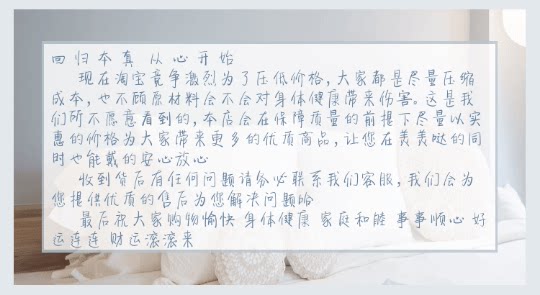 回归本真 从心开始
现在淘宝竞争激烈为了压低价格,大家都是尽量压缩
成本,也不顾原材料会不会对身体健康带来伤害。这是我
们所不愿意看到的,本店会在保障质量的前提下尽量以实
惠的价格为大家带来更多的优质商品,让您在美美哒的同
时也能戴的安心放心
收到货后有任何问题请务必联系我们客服,我们会为
您提供优质的售后为您解决问题哈
最后祝大家购物愉快 身体健康 家庭和睦 事事顺心 好
运连连 财运滚滚来